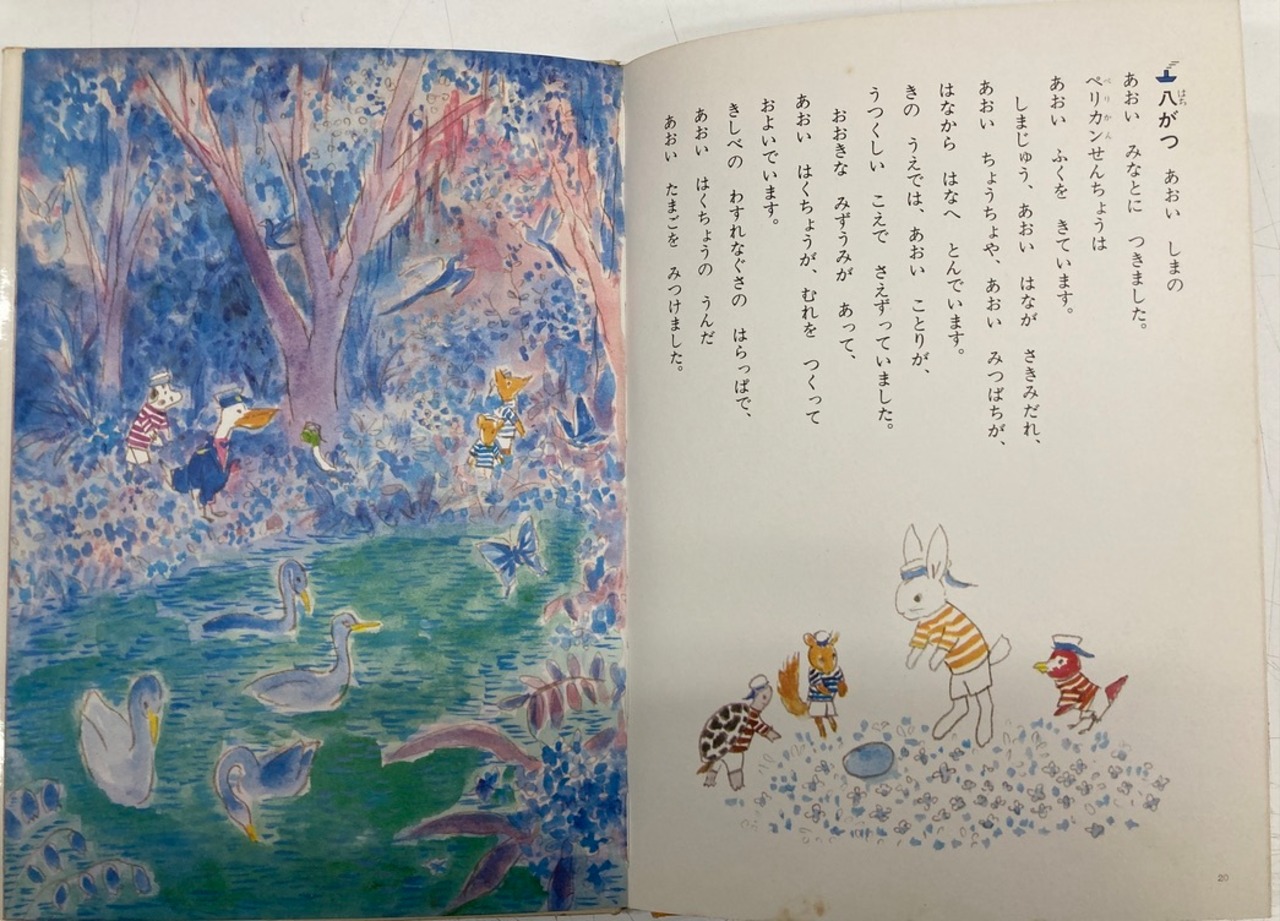 八がつ　あおい　しまの
はち
あおい　みなとに　つきました。
ペリカンせんちょうは
ぺりかん
あおい　ふくを　きています。
しまじゅう、あおい　はなが　さきみだれ、
あおい　ちょうちょや、あおい　みつばちが、
はなから　はなへ　とんでいます。
きの　うえでは、あおい　ことりが、
うつくしい　こえで　さえずっていました。
おおきな　みずうみが　あって、
あおい　はくちょうが、むれを　つくって
およいでいます。
きしべの　わすれなぐさの　はらっぱで、
あおい　はくちょうの　うんだ
あおい　たまごを　みつけました。
20